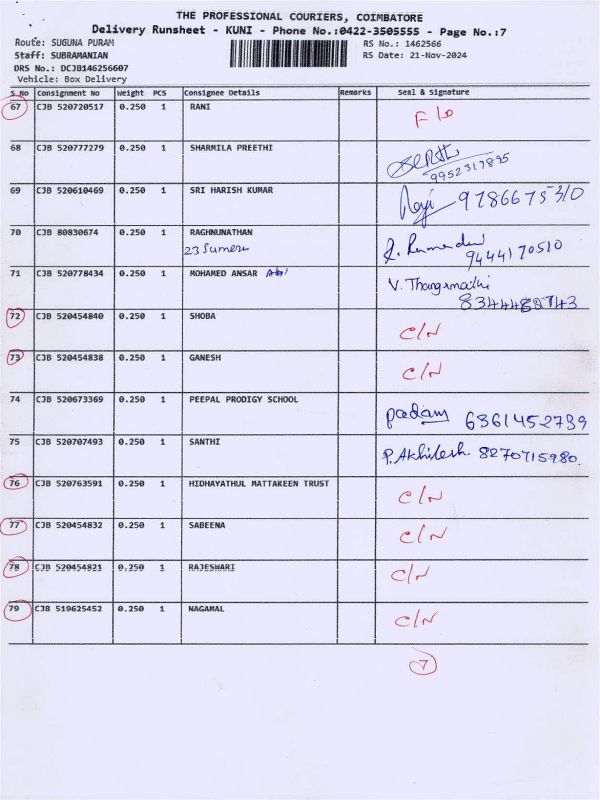 THE PROFESSIONAL COURIERS, COIMBATORE
Delivery Runsheet - KUNI - Phone No.:0422-3505555 - Page No.:7
Route: SUGUNA PURAM RS No.: 1462566
Staff: SUBRAMANIAN RS Date: 21-Nov-2024
DRS No.: DCJB146256607
Vehicle: Box Delivery
S.No Consignment No Weight PCS Consignee Details Remarks Seal & Signature
67 CJB 520720517 0.250 1 RANI
68 CJB 520777279 0.250 1 SHARMILA PREETHI
9952317895
69 CJB 520610469 0.250 1 SRI HARISH KUMAR 9786675310
70 CJB 80830674 0.250 1 RAGHNUNATHAN
23 Sumeru 9444170510
71 CJB 520778434 0.250 1 MOHAMED ANSAR V. Thangamathi
72 CJB 520454840 0.250 1 SHOBA C/N
73 CJB 520454838 0.250 1 GANESH C/N
74 CJB 520673369 0.250 1 PEEPAL PRODIGY SCHOOL padam 6361452739
75 CJB 520707493 0.250 1 SANTHI P. Akhilesh 8270715980
76 CJB 520763591 0.250 1 HIDHAYATHUL MATTAKEEN TRUST C/N
77 CJB 520454832 0.250 1 SABEENA C/N
78 CJB 520454821 0.250 1 RAJESWARI C/N
79 CJB 519625452 0.250 1 NAGAMAL C/N
7